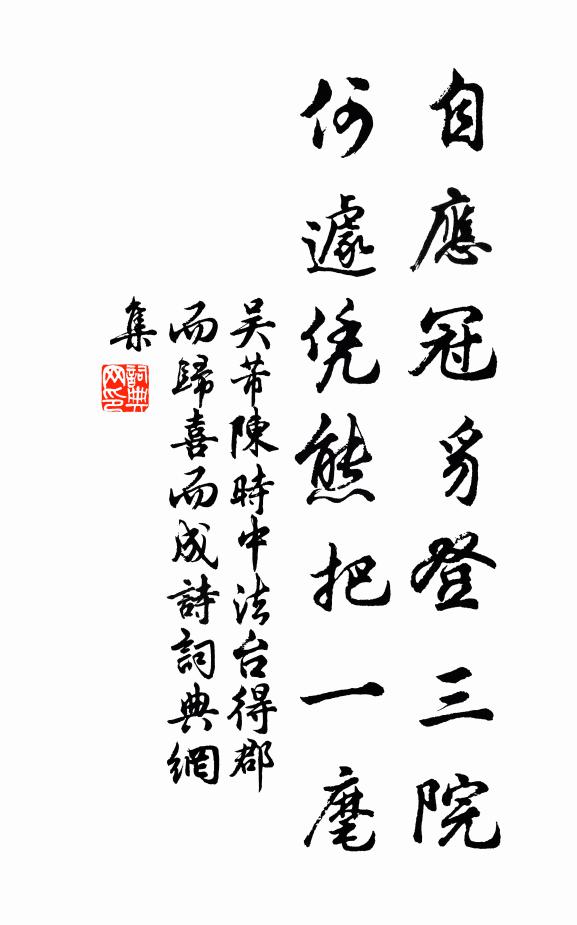 自應冠豸登三院
何遽凭熊把一麾
吴芾陳時中法台得郡
而歸喜而成詩詞典網
集
詞典网印